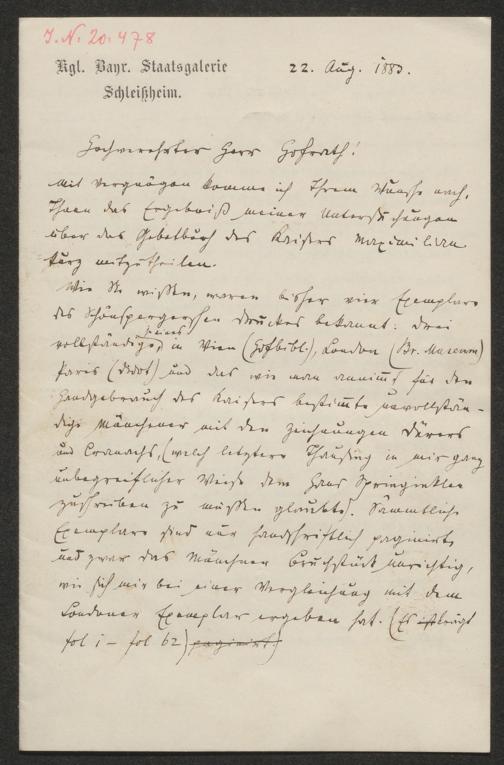 J. N. 20.478
Kgl. Bayr. Staatsgalerie
Schleißheim.
22. Aug. 1883.
Hochverehrter Herr Hofrath!
Mit Vergnügen komme ich Ihrem Wunsche nach,
Ihnen das Ergebniß meiner Untersuchungen
über das Gebetbuch des Kaisers Maximilian
kurz mitzutheilen.
Wie Sie wissen, waren bisher vier Exemplare
des Schönspergerschen Druckes bekannt: drei
vollständige, in Wien (Hofbibl.), London (Br. Museum)
Paris (Didot) und das wie man annimmt für den
Handgebrauch des Kaisers bestimmte unvollstän-
dige Münchener mit den Zeichnungen Dürers
und Cranachs, (welch letztere Thausing in mir ganz
unbegreiflicher Weise dem Hans Springinklee
zuschreiben zu müssen glaubte). Sämmtliche
Exemplare sind nur handschriftlich paginirt,
und zwar das Münchner Bruchstück unrichtig,
wie sich mir bei einer Vergleichung mit dem
Londoner Exemplar ergeben hat. (Es ist trägt
fol 1 – fol 62) paginirt)